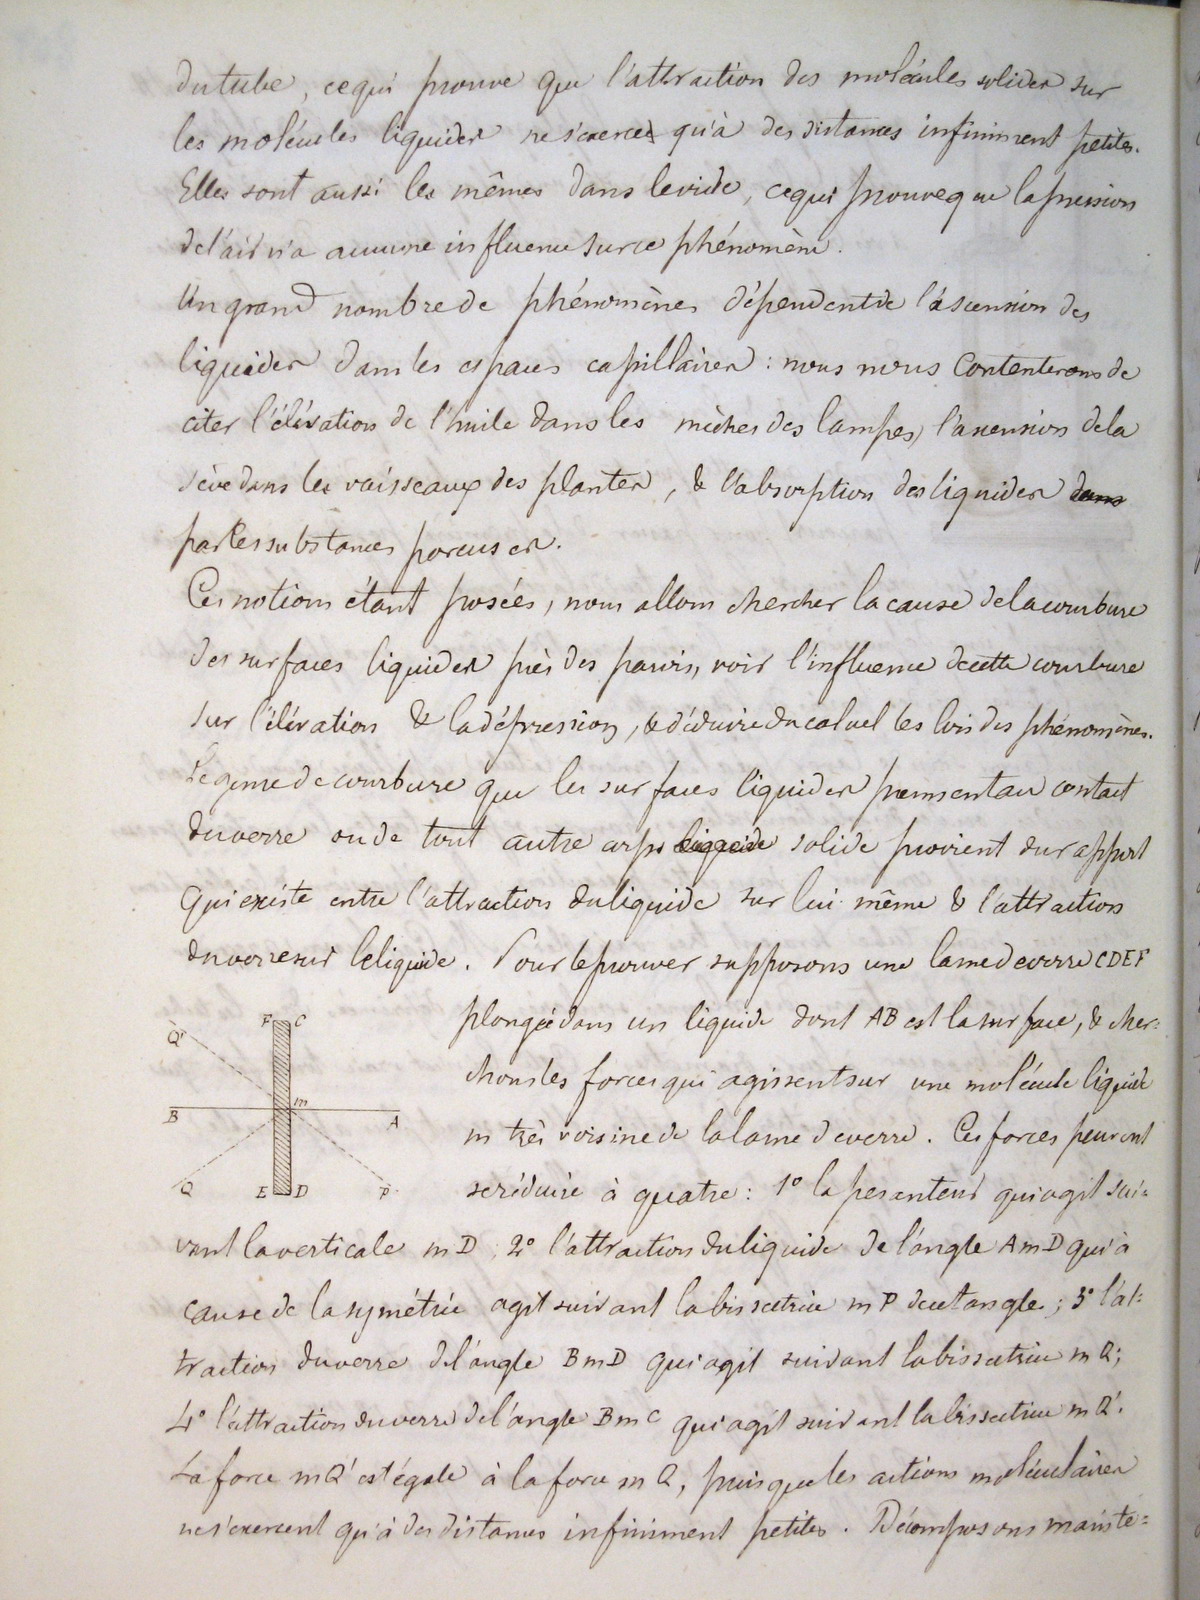 du tube, ce qui prouve que l'attraction des molécules solides sur
les molécules liquides ne s'exerce qu'à des distances infiniment petites.
Elles sont aussi les mêmes dans le vide, ce qui prouve que la pression
de l'air n'a aucune influence sur ce phénomène.
Un grand nombre de phénomènes dépendent de l'ascension des
liquides dans les espaces capillaires : nous nous contenterons de
citer l'élévation de l'huile dans les mèches des lampes, l'ascension de la
sève dans les vaisseaux des plantes, & l'absorption des liquides dans
par les substances poreuses.
Ces notions étant posées, nous allons chercher la cause de la courbure
des surfaces liquides près des parois, voir l'influence de cette courbure
sur l'élévation & la dépression, & déduire du calcul les lois des phénomènes.
Le genre de courbure que les surfaces liquides prennent au contact
du verre ou de tout autre corps liquide solide provient du rapport
qui existe entre l'attraction du liquide sur lui même & l'attraction
du verre sur le liquide. Pour le prouver supposons une lame de verre CDEF
plongée dans un liquide dont AB est la surface, & cher=
chons les forces qui agissent sur une molécule liquide
m très voisine de la lame de verre. Ces forces peuvent
se réduire à quatre : 1° la pesanteur qui agit sui=
vant la verticale mD ; 2° l'attraction du liquide de l'angle AmD qui à
cause de la symétrie agit suivant la bissectrice mP de cet angle ; 3° l'at=
traction du verre de l'angle BmD qui agit suivant la bissectrice mQ ;
4° l'attraction du verre de l'angle BmC qui agit suivant la bissectrice mQ'.
La force mQ' est égale à la force mQ, puisque les actions moléculaires
ne s'exercent qu'à des distances infiniment petites. Décomposons mainte=
F C
Q'
m
B A
Q E D P